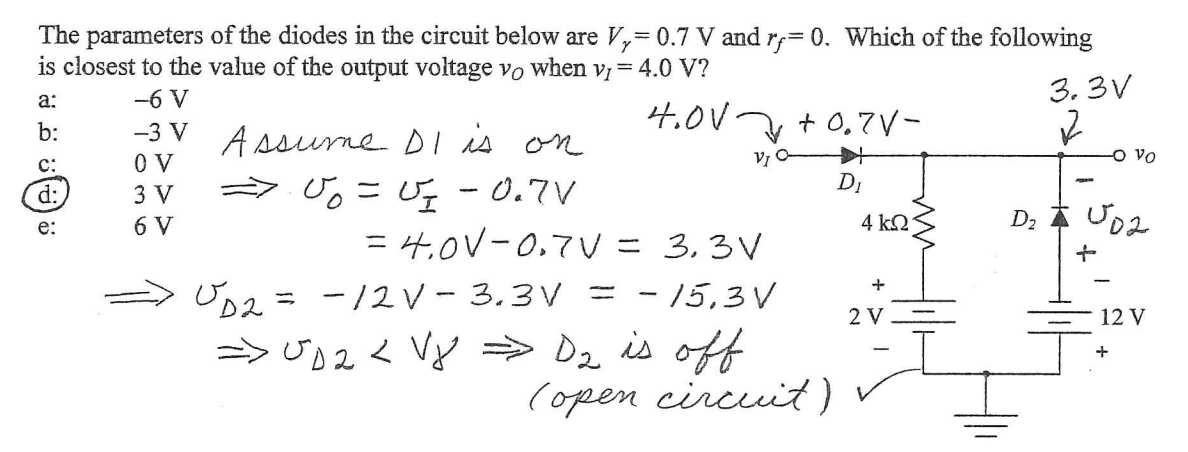 The parameters of the diodes in the circuit below are Vγ = 0.7 V and rf = 0. Which of the following
is closest to the value of the output voltage vO when vI = 4.0 V?
a: −6 V
b: −3 V
c: 0 V
d: 3 V
e: 6 V
Assume D1 is on
⇒ υO = υI − 0.7V
= 4.0V − 0.7V = 3.3V
⇒ υD2 = −12V − 3.3V = −15.3V
⇒ υD2 < Vγ ⇒ D2 is off
(open circuit) ✓
4.0V + 0.7V −
3.3V
vI
D1
vO
4 kΩ
D2
−
υD2
+
+
2 V
−
−
12 V
+